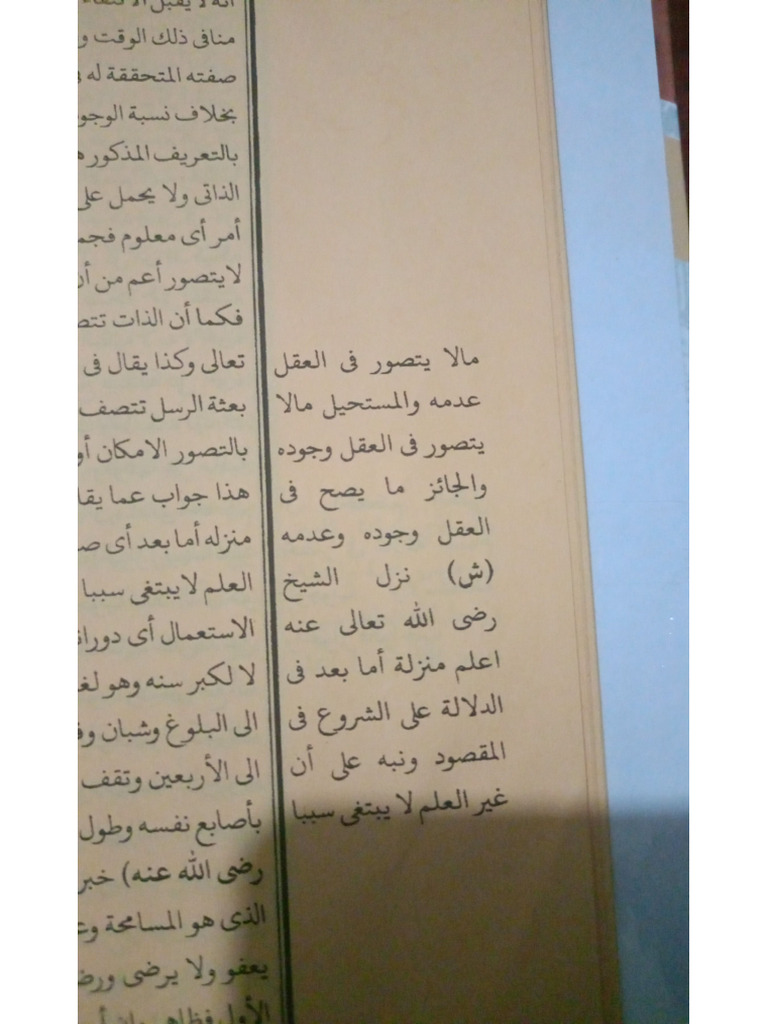 مالا يتصور فى العقل
عدمه والمستحيل مالا
يتصور فى العقل وجوده
والجائز ما يصح فى
العقل وجوده وعدمه
(ش) نزل الشيخ
رضى الله تعالى عنه
اعلم منزلة أما بعد فى
الدلالة على الشروع فى
المقصود ونبه على أن
غير العلم لا يبتغى سببا
منافى ذلك الوقت
صفته المتحققة له
بخلاف نسبة
بالتعريف المذكور
الذاتى ولا يحمل
أمر أى معلوم
لايتصور أعم من
فكما أن الذات
تعالى وكذا يقال فى
بعثة الرسل تتصف
بالتصور الامكان
هذا جواب عما
منزله أما بعد أى
العلم لايبتغى سببا
الاستعمال أى
لا لكبر سنه وهو
الى البلوغ وشبان
الى الأربعين وتقف
بأصابع نفسه وطول
رضى الله عنه) خبر
الذى هو المسامحة
يعفو ولا يرضى